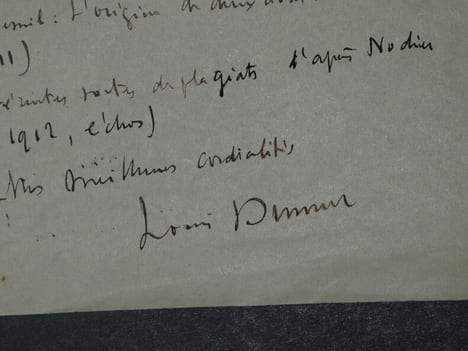 : L'origine de deux
11)
sortes de plagiats d'après Nodier
1912, échos)
meilleures cordialités
Louis Dumur